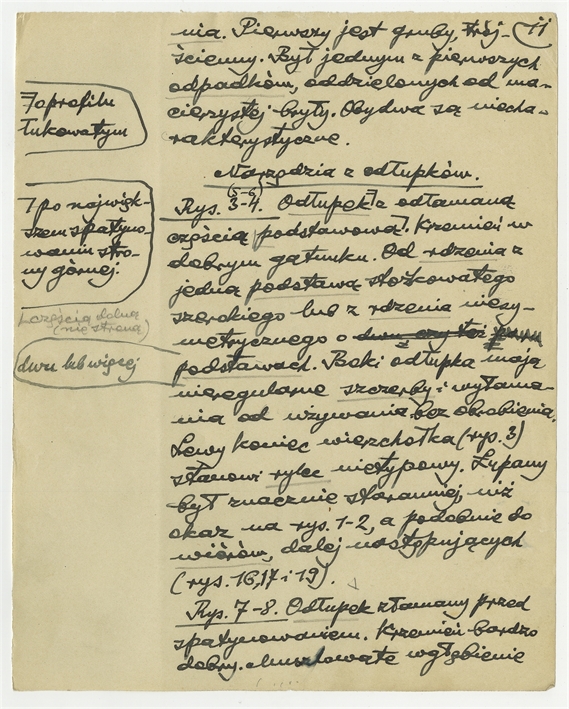 11
nia. Pierwszy jest gruby, trój-
ścienny. Był jednym z pierwszych
odpadków, oddzielonych od ma-
cierzystej bryły. Obydwa są niecha-
rakterystyczne.
Narzędzia z odłupków.
(5-6)
Rys. 3-4. Odłupek z odłamaną
częścią podstawową. Krzemień w
dobrym gatunku. Od rdzenia z
jedną podstawą stożkowatego
szerokiego lub z rdzenia niesy-
metrycznego o dwu czy też
podstawach. Boki odłupka mają
nieregularne szczerby i wyłama-
nia od używania bez obrobienia.
Lewy koniec wierzchołka (rys. 3)
stanowi rylec nietypowy. Łupany
był znacznie staranniej, niż
okaz na rys. 1-2, a podobnie do
wiórów, dalej następujących
(rys. 16, 17 i 19).
Rys. 7-8. Odłupek złamany przed
spatynowaniem. Krzemień bardzo
dobry. Muszlowate wgłębienie
7 o profilu
łukowatym
7 po najwięk-
szem spatyno-
waniu stro-
ny górnej.
częścią dolną
(nie stroną)
dwu lub więcej